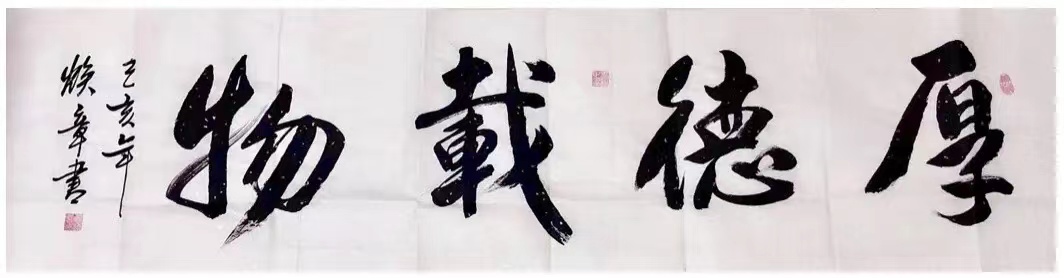 厚德載物
己亥年
焕章書